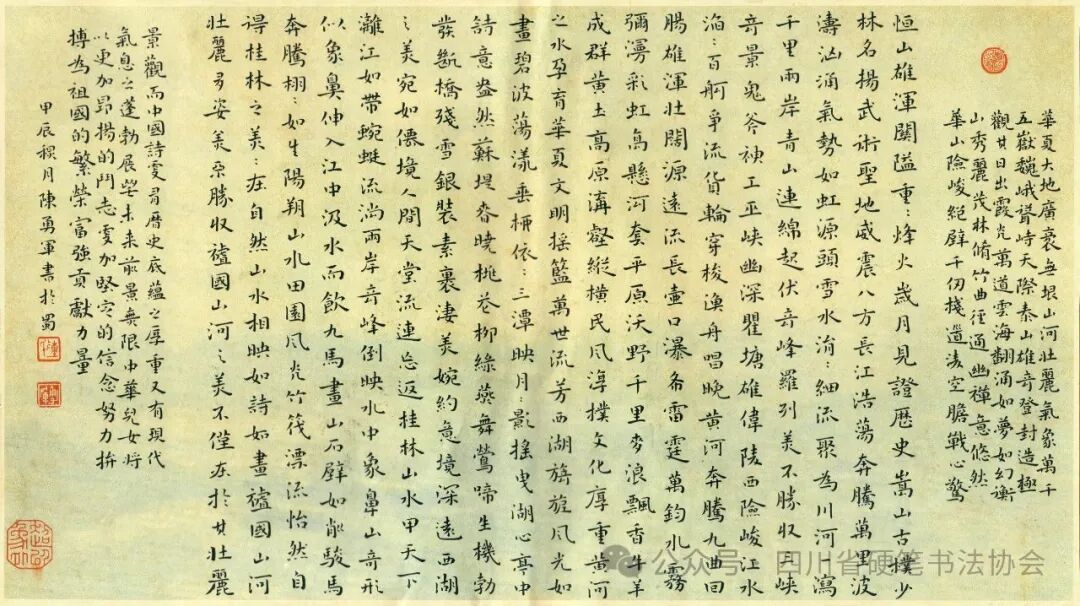 華夏大地廣袤無垠山河壯麗氣象萬千
五嶽巍峨聳峙天際泰山雄奇登封造極
觀其日出霞光萬道雲海翻涌如夢如幻衡
山秀麗茂林脩竹曲徑通幽禪意悠然
華山險峻絕壁千仞棧道淩空膽戰心驚
恒山雄渾關隘重:烽火歲月見證歷史嵩山古樸少
林名揚武術聖地威震八方長江浩蕩奔騰萬里波
濤洶涌氣勢如虹源頭雪水涓:細流聚為川河瀉
千里兩岸青山連綿起伏奇峰羅列美不勝收三峽
奇景鬼斧神工巫峽幽深瞿塘雄偉陵西險峻江水
滔:百舸爭流貨輪穿梭漁舟唱晚黃河奔騰九曲回
腸雄渾壯闊源遠流長壺口瀑布雷霆萬鈞水霧
彌漫彩虹高懸河套平原沃野千里麥浪飄香牛羊
成群黃土高原溝壑縱橫民風淳樸文化厚重黃河
之水孕育華夏文明搖籃萬世流芳西湖旖旎風光如
畫碧波蕩漾垂柳依:三潭映月:影搖曳湖心亭中
詩意盎然蘇堤春曉桃花柳綠燕舞鶯啼生機勃
發斷橋殘雪銀裝素裹淒美婉約意境深遠西湖
之美宛如僊境人間天堂流連忘返桂林山水甲天下
灕江如帶蜿蜒流淌兩岸奇峰倒映水中象鼻山奇形
似象鼻伸入江中汲水而飲九馬畫山石壁如削駿馬
奔騰栩:如生陽朔山水田園風光竹筏漂流怡然自
得桂林之美:在自然山水相映如詩如畫祖國山河
壯麗多姿美不勝收祖國山河之美不僅在於其壯麗
景觀而中國詩更有歷史底蘊之厚重又有現代
氣息之蓬勃展望未來前景無限中華兒女將
以更加昂揚的鬥志更加堅定的信念努力拚
搏為祖國的繁榮富強貢獻力量
甲辰槐月陳勇軍書於蜀
公众号 四川省硬笔书法协会